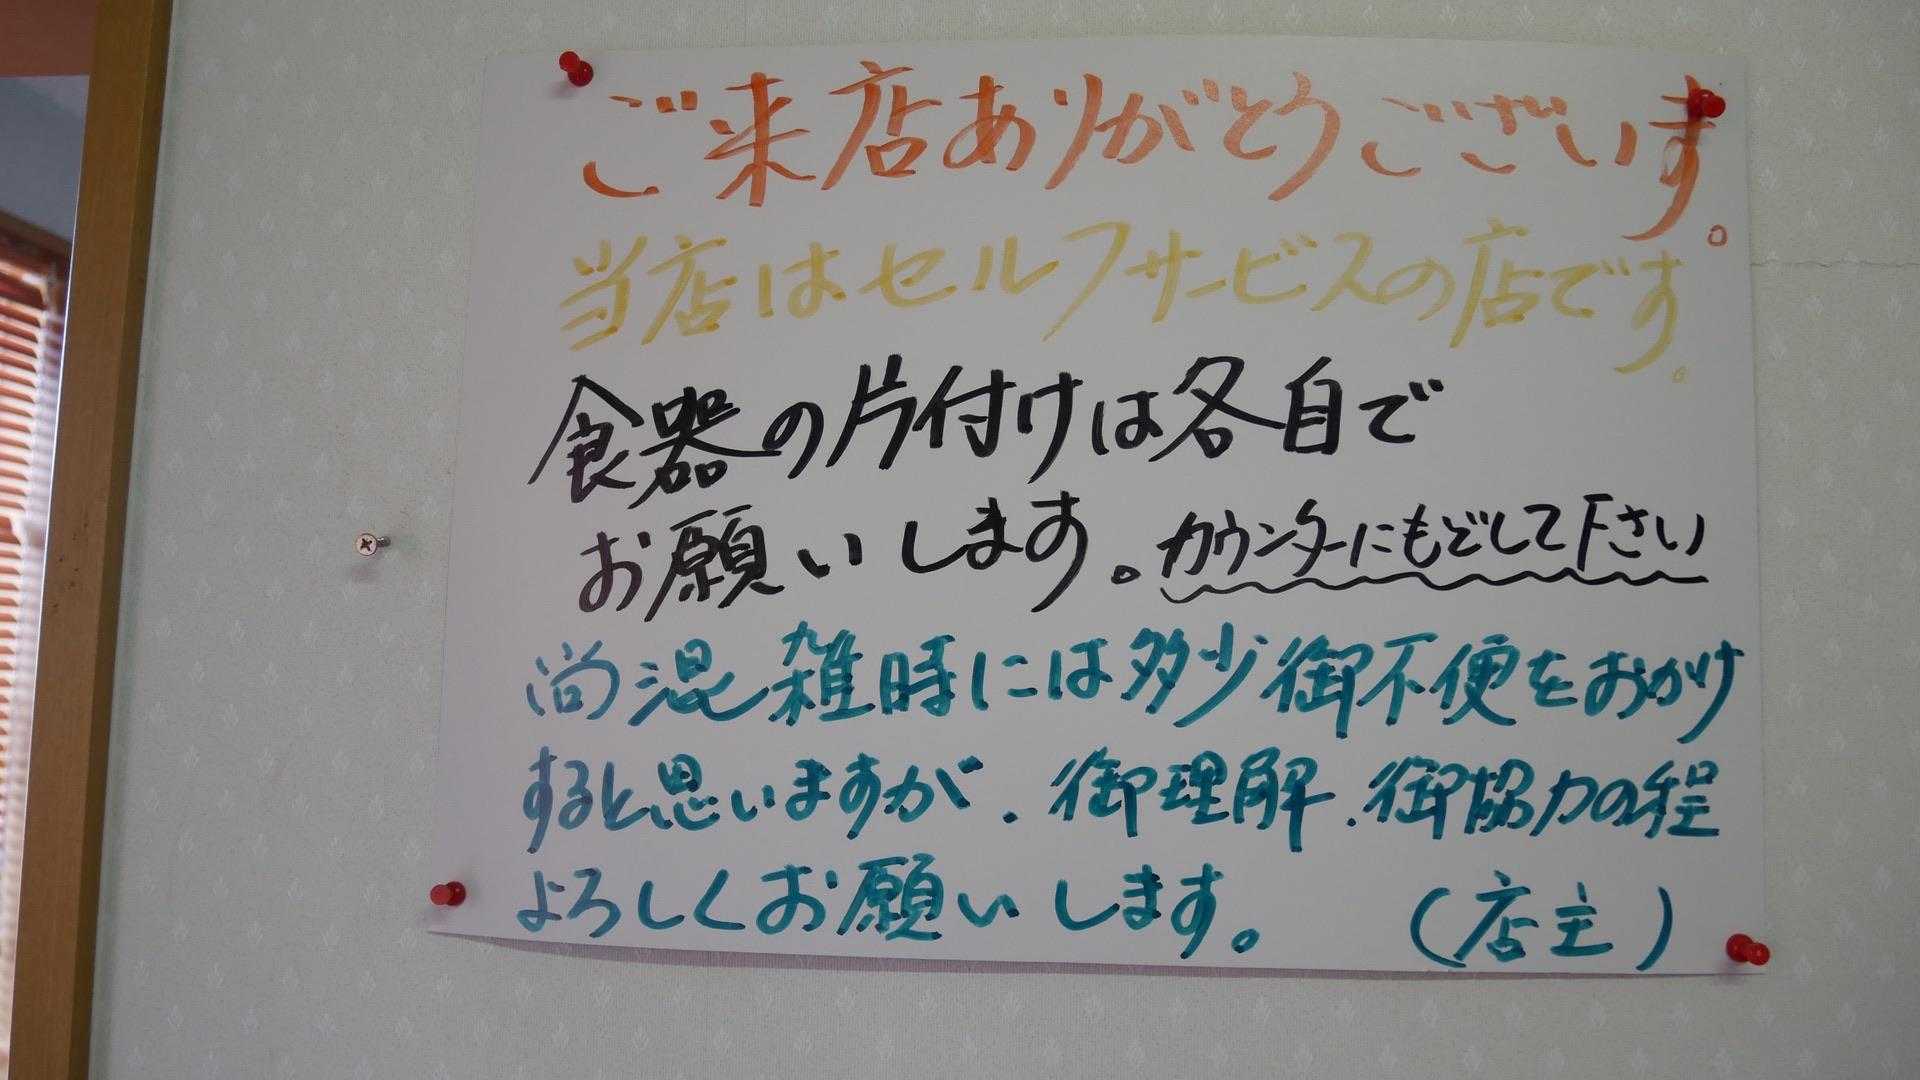 ご来店ありがとうございます。
当店はセルフサービスの店です。
食器の片付けは各自で
お願いします。カウンターにもどして下さい
尚混雑時には多少御不便をおかけ
すると思いますが、御理解、御協力の程
よろしくお願いします。(店主)